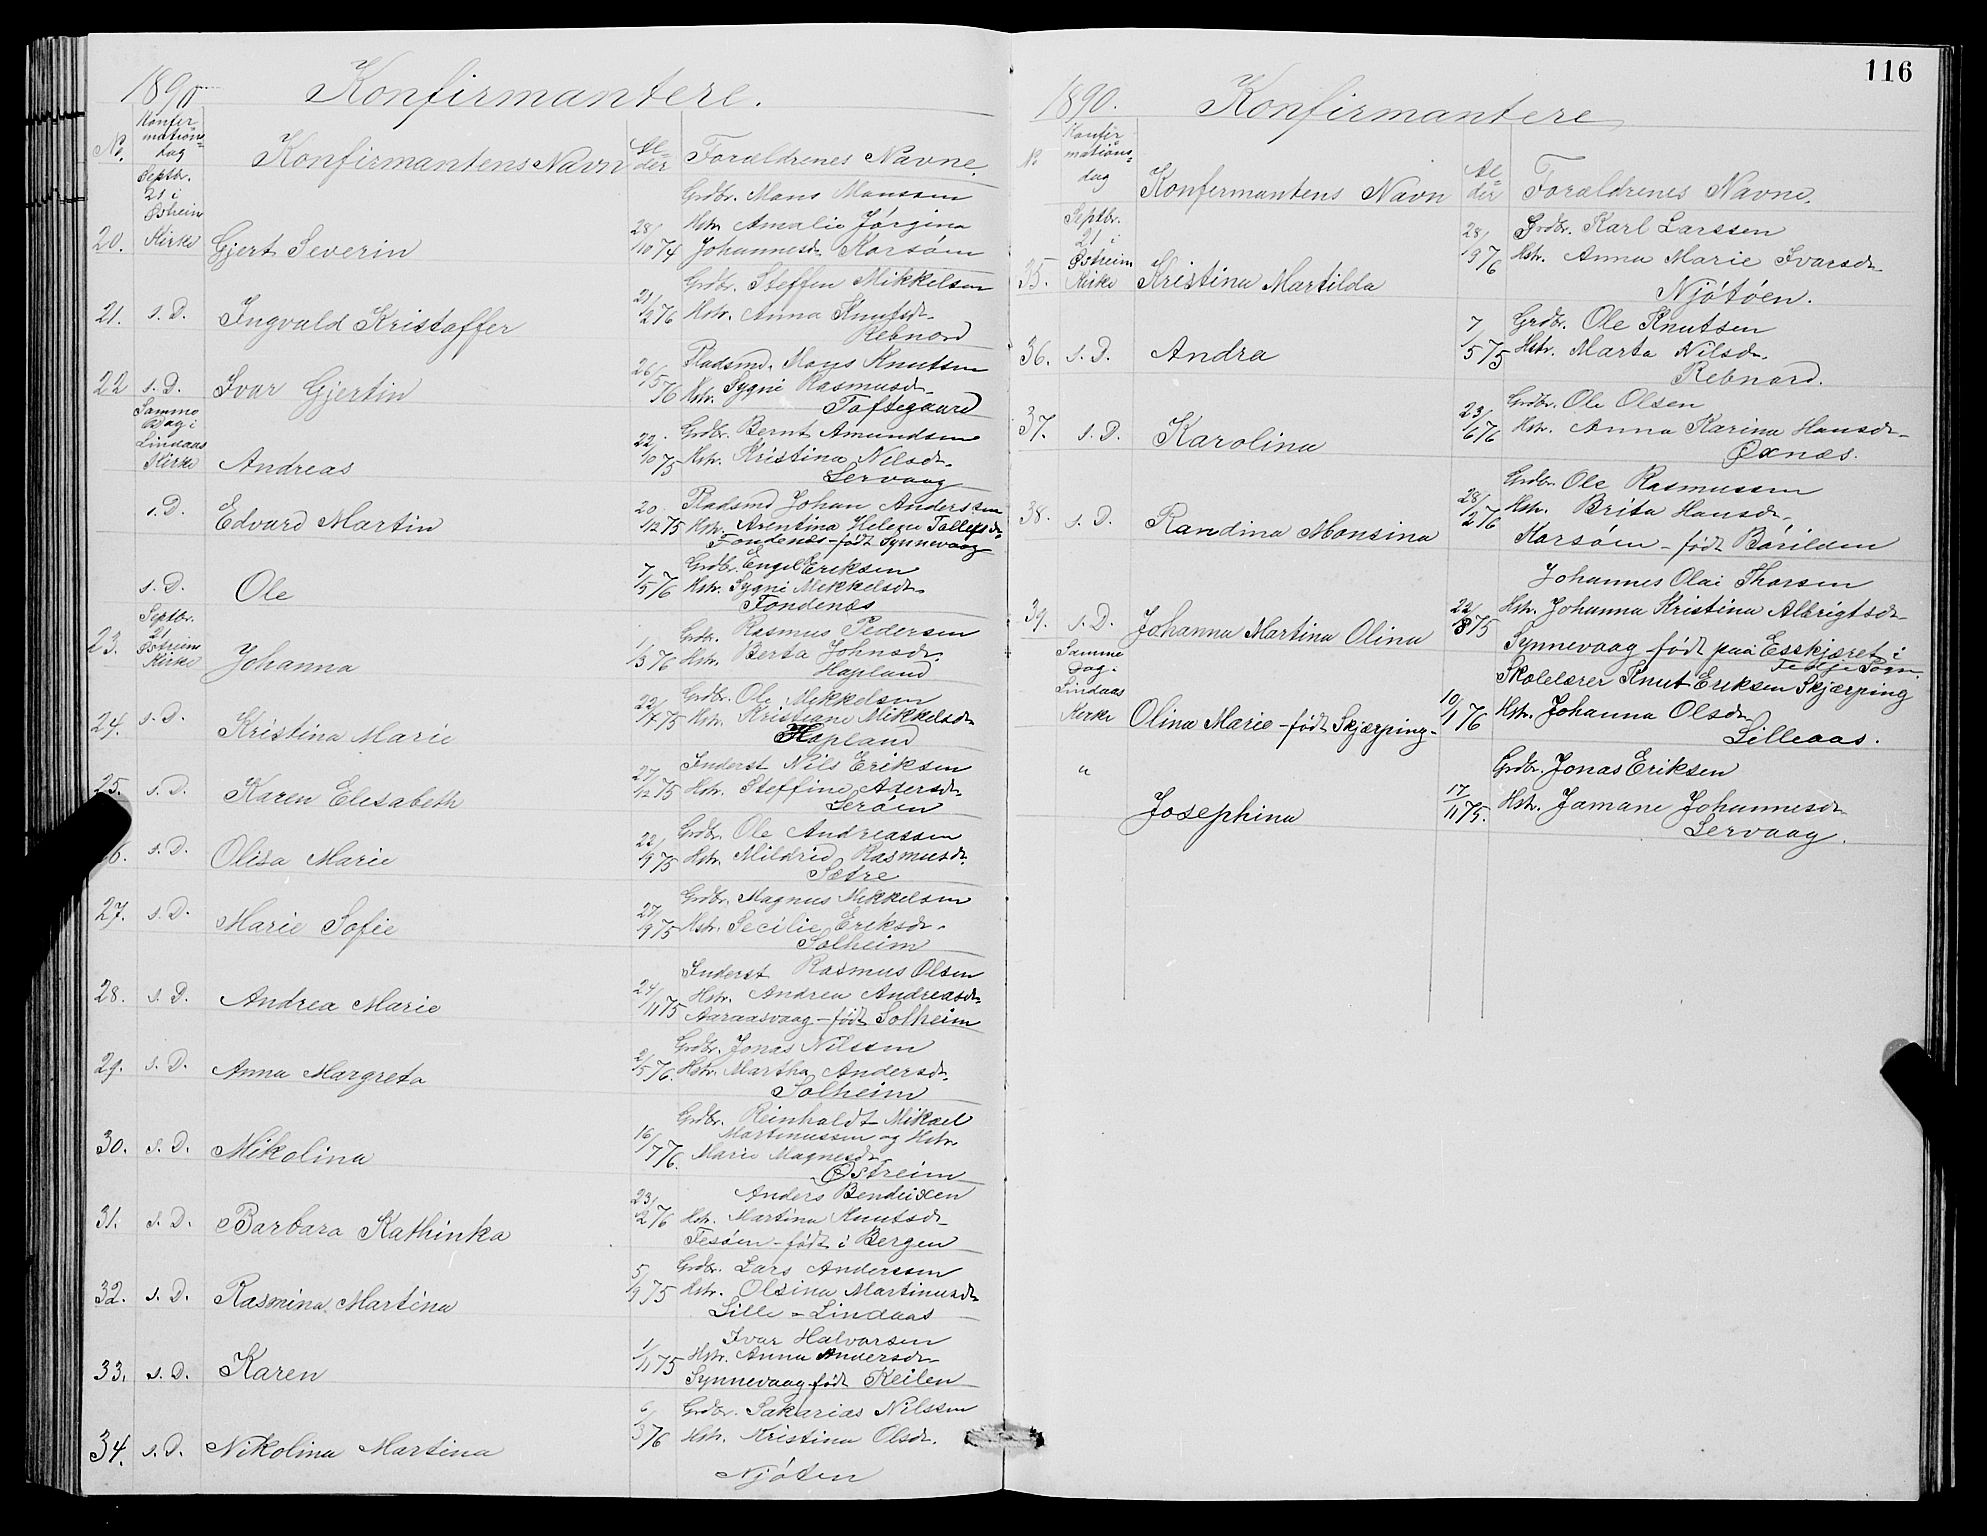 1890
Konfirmantere.
Nr. Konfirmations=dag Konfirmantens Navn Al=der Forældrenes Navne.
20. Septbr. 21 i Østreim Kirke Gjert Severin 28/10 74 Grdbr. Mons Monssen
Hstr. Amalie Jørgina
Johannesdr. Karsøen
21. s. D. Ingvald Kristoffer 21/2 76 Grdbr. Steffen Mikkelsen
Hstr. Anna Knutsdr.
Rebnord
22 s. D. Ivar Gjertin 26/5 76 Pladsmd. Mons Knutsen
Hstr. Sygni Rasmusdr.
Toftegaard
Samme Dag i Lindaas Kirke Andreas 22/10 75 Grdbr. Bernt Amundsen
Hstr. Kristina Nilsdr.
Lervaag
s. D. Edvard Martin 20/12 75 Pladsmd Johan Anderssen
Hstr. Arentina Helene Tollefsdr.
Fondenes - født Synnevaag
s. D. Ole 7/5 76 Grdbr. Engel Eriksen
Hstr. Sygni Mikkelsdr.
Fondenes
23. Septbr. 21 Østreim Kirke Johanna 1/3 76 Grdbr. Rasmus Pedersen
Hstr. Berta Johnsdr.
Hopland
24. s. D. Kristina Marie 22/7 75 Grdbr. Ole Mikkelsen
Hstr. Kristiane Mikkelsdr
Hopland
25. s. D. Karen Elisabeth 27/12 75 Inderst Nils Eriksen
Hstr. Steffine Asersdr.
Lerøen
26. s. D. Olisa Marie 22/9 75 Grdbr. Ole Andreassen
Hstr. Mildrid Rasmusdr.
Sætre
27. s. D. Marie Sofie 27/9 75 Grdbr. Magnus Mikkelsen
Hstr. Secilie Eriksdr.
Solheim
28. s. D. Andrea Marie 24/11 75 Inderst Rasmus Olsen
Hstr. Andrea Andreasdr.
Aaraasvaag - født Solheim
29. s. D. Anna Margreta 2/5 76. Grdbr. Jonas Nilssen
Hstr. Martha Andersdr.
Solheim
30. s. D. Mikolina 16/7 76. Grdbr. Reinholdt Mikael
Martinussen og Hstr.
Marie Magnesdr.
Østreim
31. s. D. Barbara Kathinka 23/2 76 Anders Bendixen
Hstr. Martina Knutsdr.
Fesøen - født i Bergen
32. s. D. Rasmina Martina 5/9 75 Grdbr. Lars Anderssen
Hstr. Olsina Martinusdr.
Lille = Lindaas
33. s. D. Karen 1/11 75 Ivar Halvorsen
Hstr. Anna Andersdr.
Synnevaag født Keilen
34. s. D. Nikolina Martina 6/3 76 Grdbr. Sakarias Nilssen
Hstr. Kristina Olsdr.
Njøten
116
1890. Konfirmantere
Nr. Konfirmations=dag Konfermantens Navn Al=der Forældrenes Navne.
35. Septbr. 21 i Østreim Kirke Kristina Martilda 28/9 76 Grdbr. Karl Larssen
Hstr. Anna Marie Ivarsdr.
Njøtøen.
36. s. D. Andra 7/5 75 Grdbr. Ole Knutsen
Hstr. Marta Nilsdr.
Rebnord.
37. s. D. Karolina 23/6 76 Grdbr. Ole Olsen
Hstr. Anna Karina Hansdr.
Oxnæs.
38. s. D. Randina Monsina 28/2 76 Grdbr. Ole Rasmussen
Hstr. Brita Hansdr.
Karsøen - født Børilden
39. s. D. Johanna Martina Olina 22/8 75 Johannes Olai Thorsen
Hstr. Johanna Kristina Albrigtsdr
Synnevaag født paa Esskjæret i
Fedje Sogn
Samme Dag i Lindaas Kirke Olina Marie - født Skjærping - 10/1 76 Skolelærer Knut Eriksen Skjærping
Hstr. Johanna Olsdr
Lilleaas.
" Josephina 17/11 75. Grdbr. Jonas Eriksen
Hstr. Jamane Johannesdr
Lervaag.